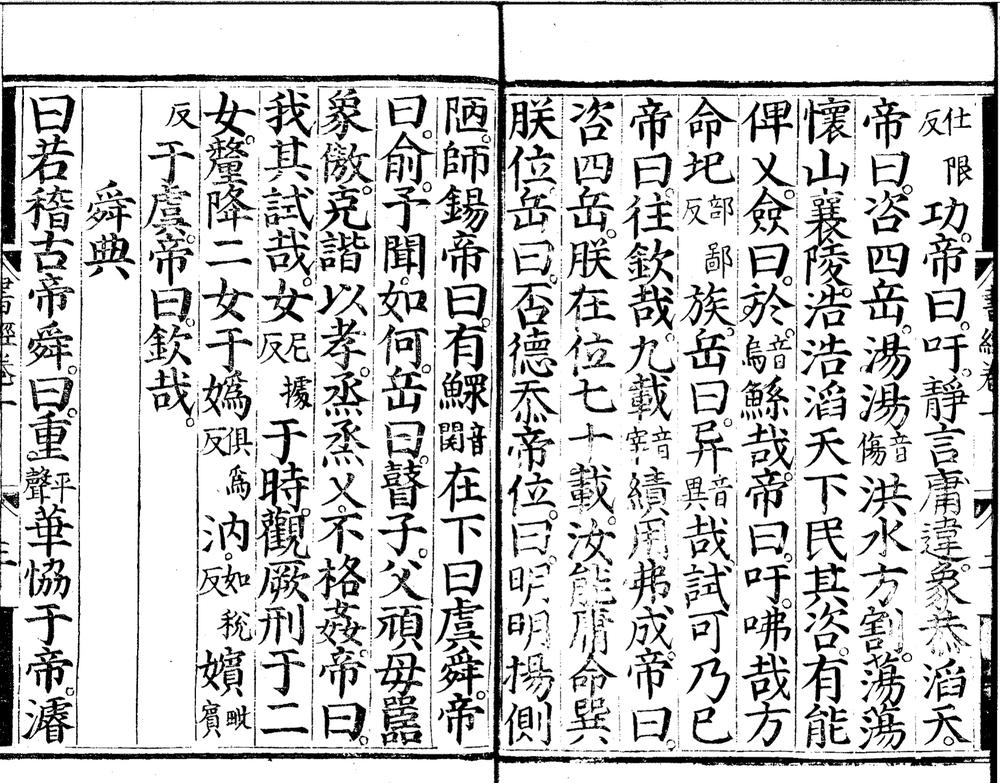 仕限反功。帝曰。吁。靜言庸違。象恭滔天。
帝曰。咨四岳。湯湯音傷洪水方割。蕩蕩
懷山襄陵。浩浩滔天。下民其咨。有能
俾乂。僉曰。於。音烏鯀哉。帝曰。吁。咈哉。方
命圮部鄙反族。岳曰。异音異哉。試可乃已
帝曰。往欽哉。九載音宰績用弗成。帝曰
咨四岳。朕在位七十載。汝能庸命巽
朕位。岳曰。否德忝帝位。曰。明明揚側
陋。師錫帝曰。有鰥音關在下。曰虞舜。帝
曰。俞。予聞。如何。岳曰。瞽子。父頑母嚚
象傲。克諧以孝。烝烝乂。不格姦。帝曰。
我其試哉。女尼據反于時。觀厥刑于二
女。釐降二女于媯俱爲反汭。如稅反嬪毗賓
反于虞。帝曰。欽哉。
舜典
曰若稽古帝舜。曰。重平聲華協于帝。濬